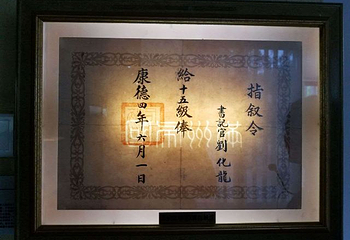 指叙令
書記官劉化龍
給十五級俸
康德四年六月一日